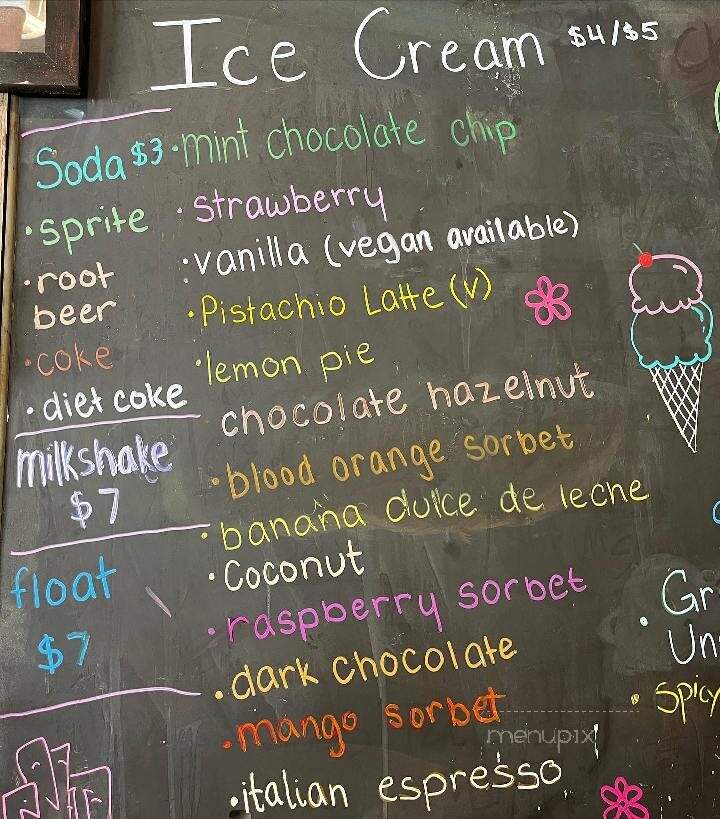 Ice Cream $4/$5
Soda $3
• sprite
• root
beer
• coke
• diet coke
milkshake
$7
float
$7
• mint chocolate chip
• strawberry
• vanilla (vegan available)
• Pistachio Latte (v)
• lemon pie
chocolate hazelnut
• blood orange sorbet
• banana dulce de leche
• Coconut
• raspberry sorbet
• dark chocolate
• mango sorbet
• italian espresso
• Gr
Un
• Spicy
menupix